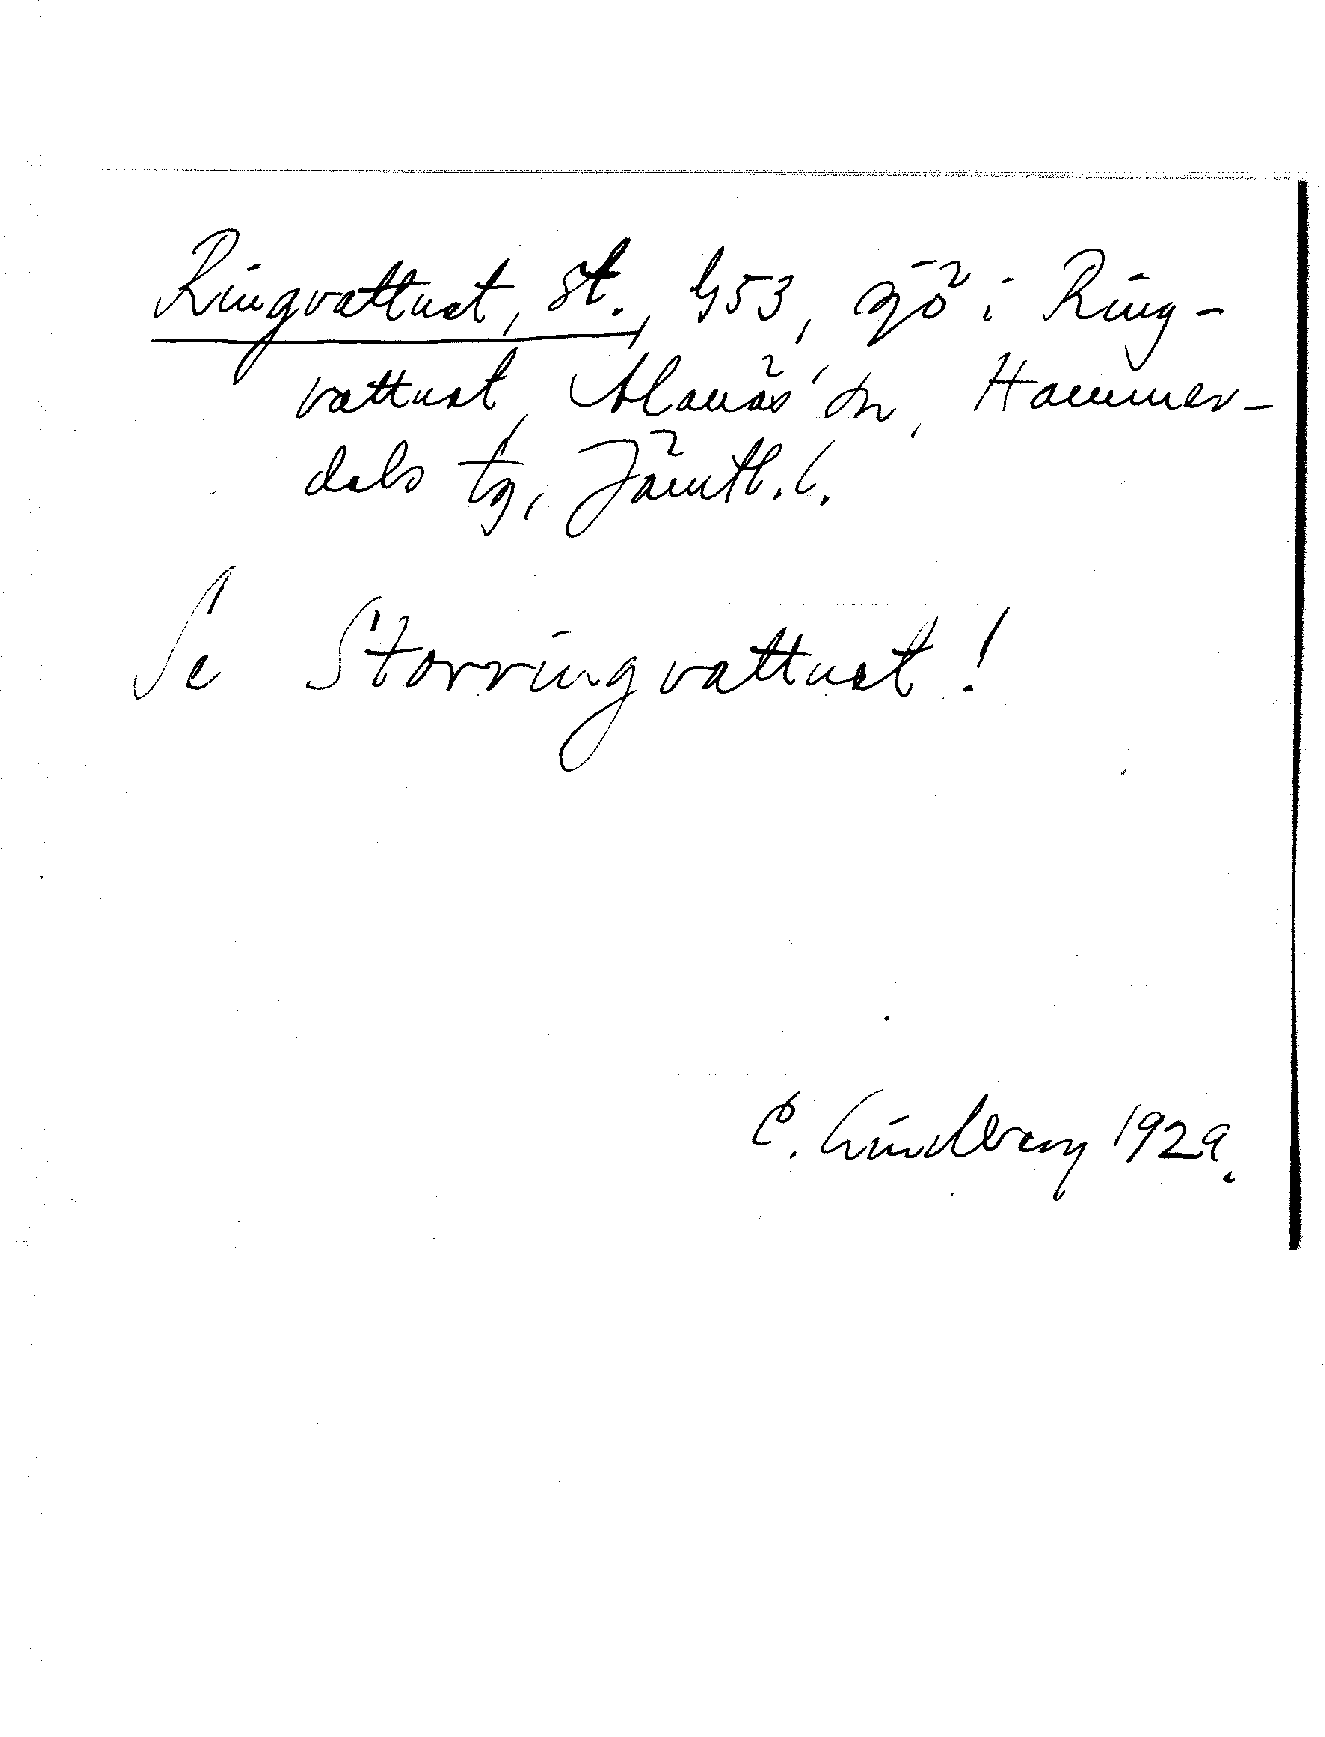 Ringvattnet, St., G53, sjö i Ring-
vattnet, Alanäs sn, Hammer-
dals tg, Jämtl. l.
Se Storringvattnet!
E. Lindberg 1929.